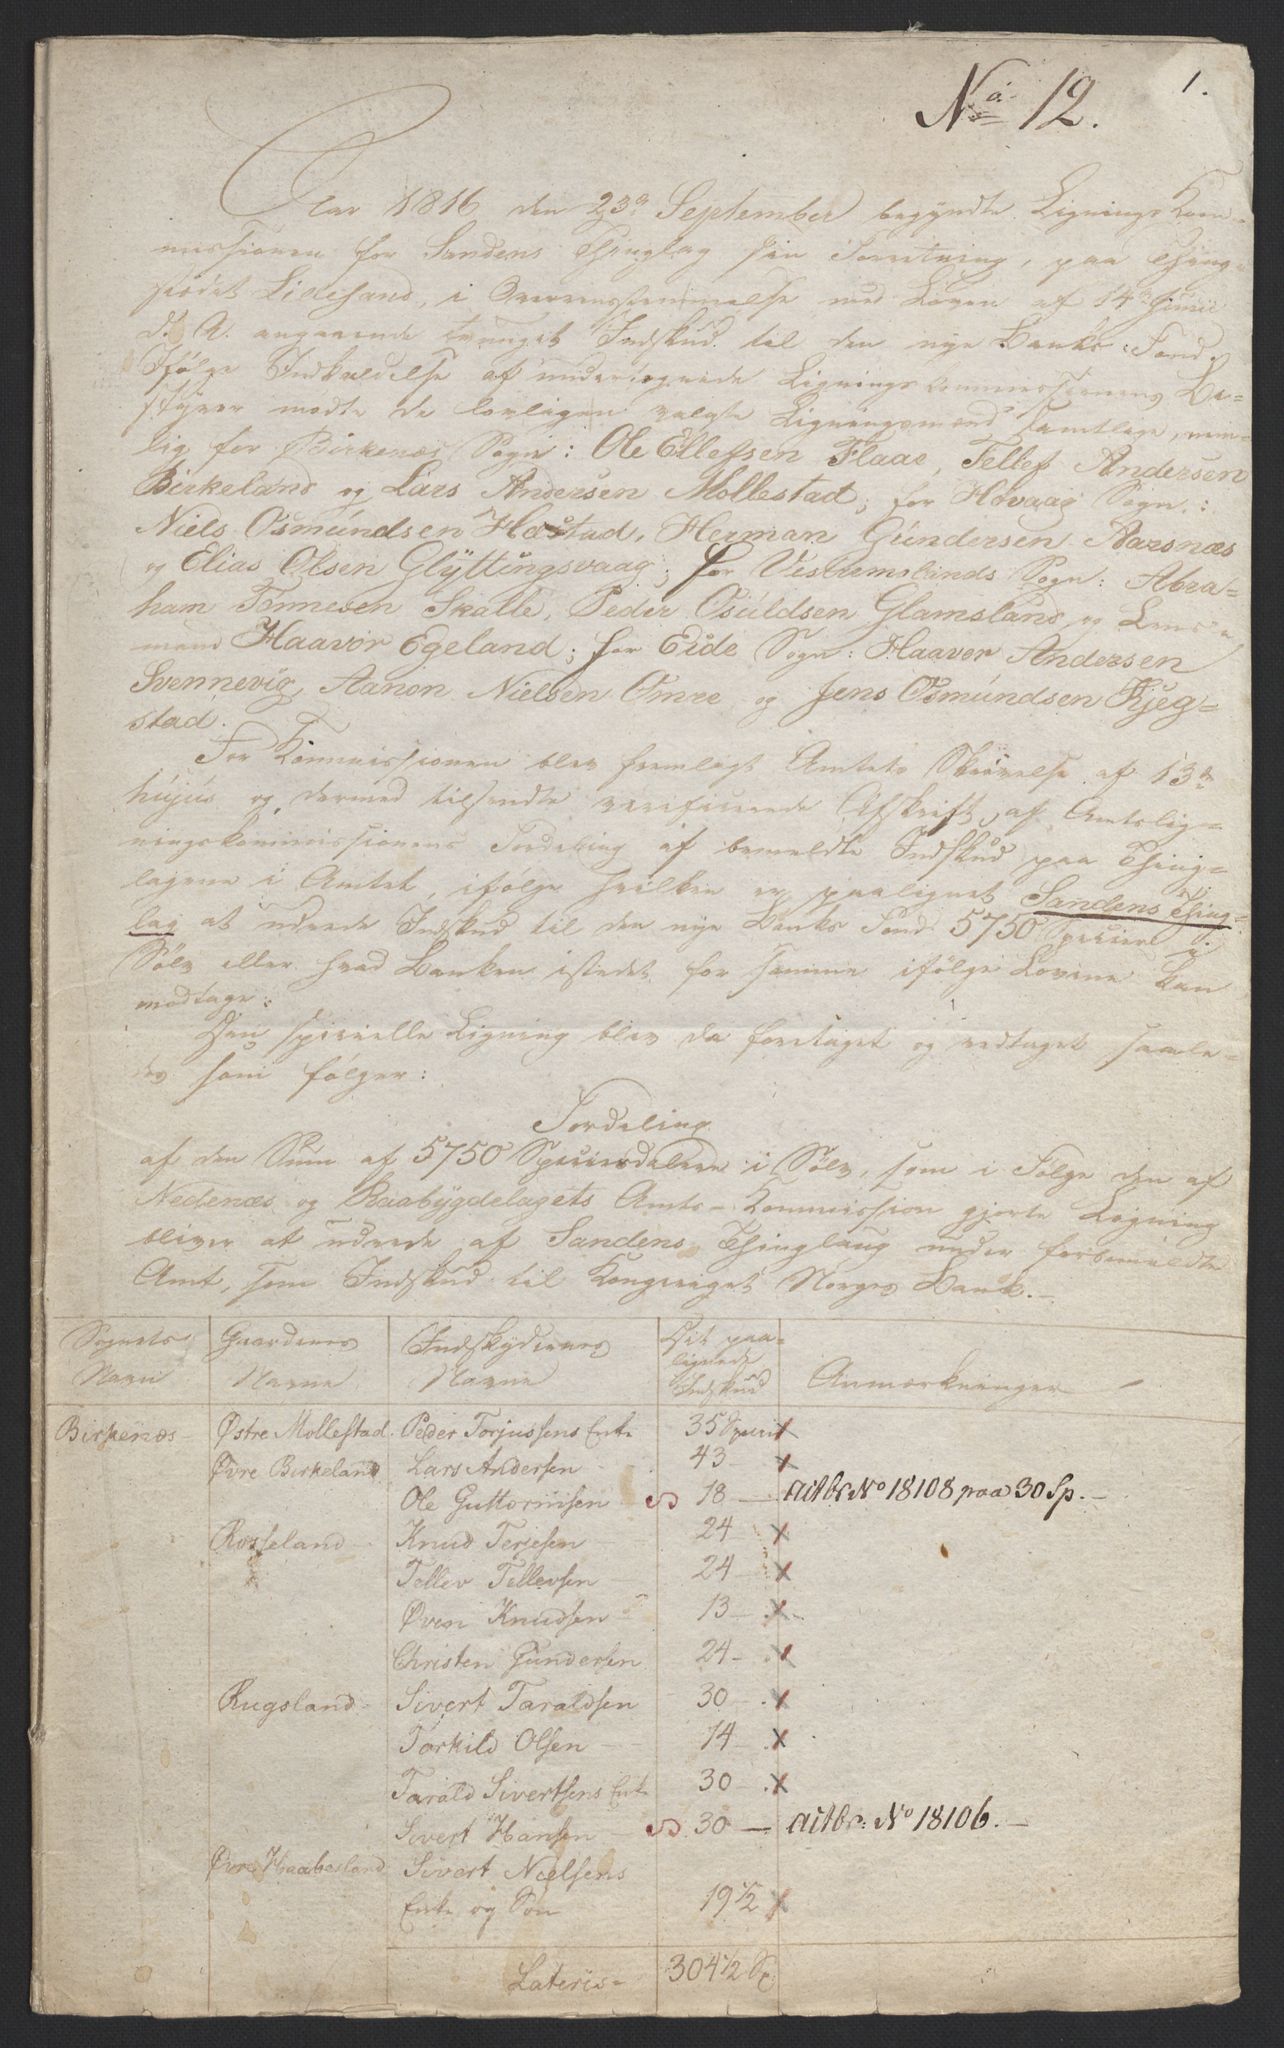 1.
No 12.
Aar 1816 den 23de September begyndte Lignings Kom-
missionen for Sandens Thinglag sin Forretning, paa Thing-
stædet Lillesand, i Overensstemmelse med Loven af 14de Junii
d. A. angaaende tvunget Indskud til den nye Banks Fond.
Ifølge Indkaldelse af undertegnede Ligningskommissionens Be-
styrer mødte de lovligen valgte Ligningsmænd samtlige, nem-
lig for Birkenæs Sogn: Ole Ellefsen Flaae, Tellef Andersen
Birkeland og Lars Andersen Mollestad; for Høvaag Sogn:
Niels Osmundsen Hæstad, Herman Gundersen Aarsnæs
og Elias Olsen Glyttingsvaag; for Vestremolands Sogn: Abra-
ham Tønnesen Skalle, Peder Osuldsen Glamsland, og Lens-
mand Haavor Egeland; for Eide Sogn: Haavor Andersen
Svennevig, Aanon Nielsen Omre og Jens Osmundsen Kjeg-
stad.
For Kommissionen blev fremlagt Amtets Skrivelse af 13de
hujus og dermed tilsendte verificerede Afskrift af Amtslig-
ningskommissionens Fordeling af bemeldte Indskud paa Thing-
lagene i Amtet, ifølge hvilken er paalignet Sandens Thing-
lag at udrede Indskud til den nye Banks Fond 5750 Specier i
Sølv eller hvad Banken istedet for samme ifølge Lovene kan
modtage.
Den specielle Ligning blev da foretaget og vedtaget saale-
des som følger:
Fordeling
af den Sum af 5750 Speciesdalere i Sølv, som i Følge den af
Nedenæs og Raabygdelagets Amts-Kommission gjorte Ligning
bliver at udrede af Sandens Thinglaug under forbemeldte
Amt, som Indskud til Kongeriget Norges Bank.-
Sognets Navn Gaardenes Navne Indskydernes Navne Det paa-lignede Indskud Anmærkninger
Birkenæs - Østre Mollestad. Peder Torjussens Enke 35 Specier x
Øvre Birkeland Lars Andersen - 43 - x
Ole Guttormsen 18 - No 18108 paa 30 Sp. -
Rosseland - Knud Terjesen 24 x
Tellev Tellevsen - 24 - x
Øven Knudsen - 13 - x
Christen Gundersen 24 - x
Rugsland - Sivert Taraldsen 30 - x
Torkild Olsen - 14 - x
Tarald Sivertsens Enke 30 - x
Sivert Hansen - 30 - No 18106. -
Øvre Haabesland Sivert Nielsens
Enke og Søn 19 1/2 x
Lateris - 304 1/2 Sp